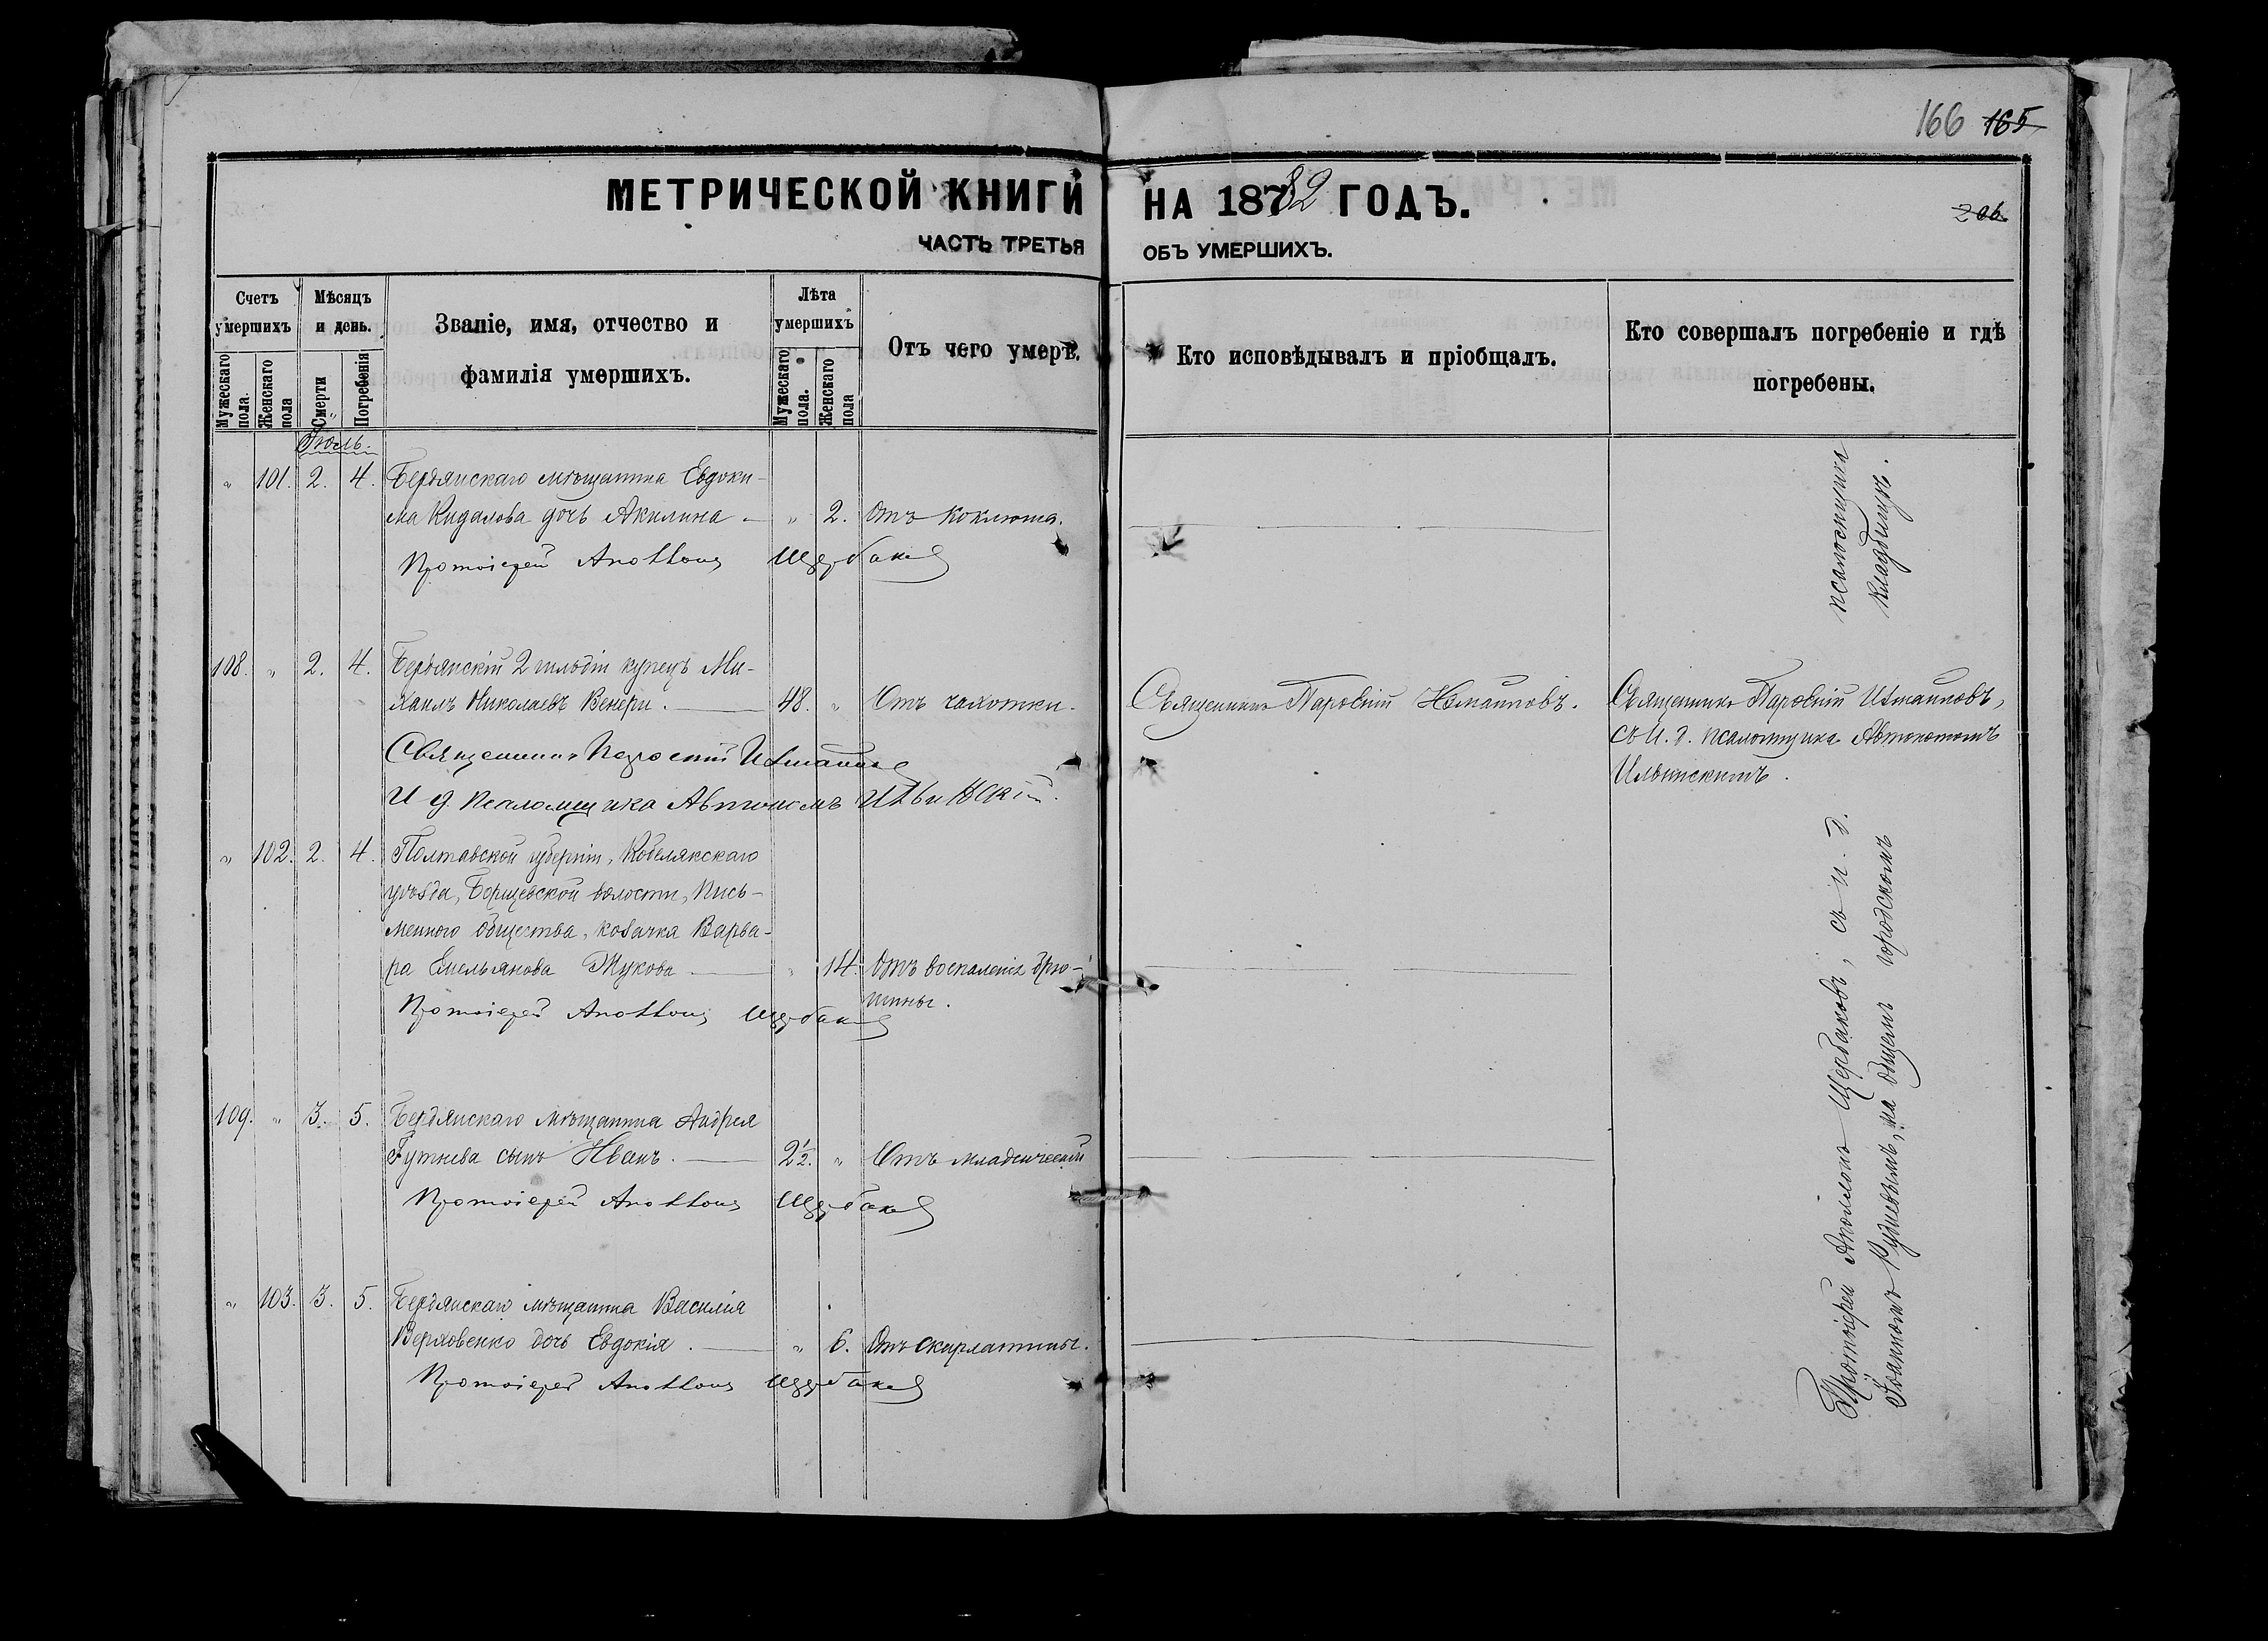 166 165
МЕТРИЧЕСКОЙ КНИГИ НА 18782 ГОДЪ.
206.
ЧАСТЬ ТРЕТЬЯ ОБЪ УМЕРШИХЪ.
Счетъ умершихъ
Мужескаго пола.
Женскаго пола
Мѣсяцъ и день.
Смерти
Погребенія
Званіе, имя, отчество и
фамилія умершихъ.
Лѣта умершихъ
Мужескаго пола.
Женскаго пола
Отъ чего умеръ.
Кто исповѣдывалъ и пріобщалъ.
Кто совершалъ погребеніе и гдѣ
погребены.
Іюль.
" 101. 2. 4. Бердянскаго мѣщанина Евдоки-
ма Кидалова дочь Акилина " 2. Отъ коклюша.
Протоіерей Аполлонъ Щербаковъ
108. " 2. 4. Бердянскій 2 гильдіи купецъ Ми-
хаилъ Николаевъ Венери. 48. " Отъ чахотки. Священникъ Паровскій. Священникъ
Священникъ
съ И. д. псаломщика Автономомъ
Ильинскимъ.
И д псаломщика Автономъ Ильинскій.
" 102. 2. 4. Полтавской губерніи, Кобелякскаго
уѣзда, Борщевской волости, Пись-
меннаго общества, козачка Варва-
ра Емельянова Жукова " 14. Отъ воспаленія брю-
шины.
Протоіерей Аполлонъ Щербаковъ
109. " 3. 5. Бердянскаго мѣщанина Андрея
сынъ Иванъ. 2½. " Отъ младенческой
Протоіерей Аполлонъ Щербаковъ
" 103. 3. 5. Бердянскаго мѣщанина Василія
Верховенко дочь Евдокія. " 6. Отъ скарлатины.
Протоіерей Аполлонъ Щербаковъ
Протоіерей Аполлонъ Щербаковъ, съ и. д. псаломщика
Іоанномъ Рудневымъ, на общемъ городскомъ кладбищѣ.